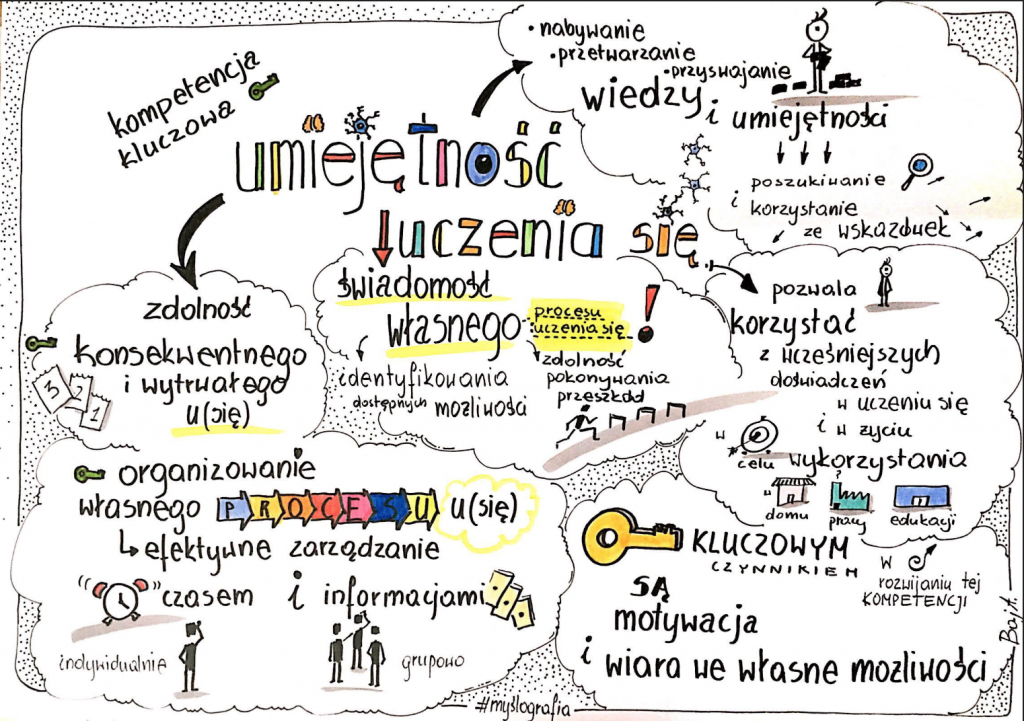 kompetencja
kluczowa
umiejętność
uczenia się
• nabywanie
• przetwarzanie
• przyswajanie
wiedzy
i umiejętności
poszukiwanie
i korzystanie
ze wskazówek
zdolność
konsekwentnego
i wytrwałego
u(się)
3 2 1
świadomość
własnego
procesu
uczenia się
!
identyfikowania
dostępnych możliwości
zdolność
pokonywania
przeszkód
pozwala
korzystać
z wcześniejszych
doświadczeń
w uczeniu się
i w życiu
w
celu wykorzystania
w
domu
pracy
edukacji
organizowanie
własnego PROCESU u(się)
efektywne zarządzanie
czasem i informacjami
indywidualnie
grupowo
KLUCZOWYM
CZYNNIKIEM
w
rozwijaniu tej
KOMPETENCJI
SĄ
motywacja
i wiara we własne możliwości
#myślografia
BajA